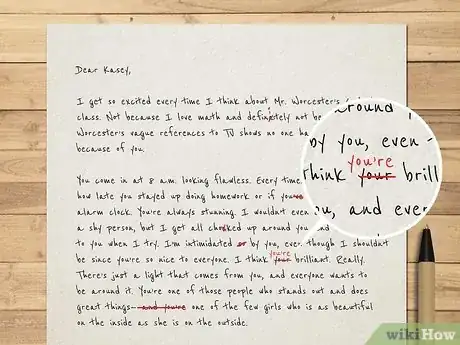 Dear Kasey,
I get so excited every time I think about Mr. Worcester's
class. Not because I love math and definitely not be
Worcester's vague references to TV shows no one ha
because of you.
You come in at 8 a.m. looking flawless. Every time
how late you stayed up doing homework or if
alarm clock. You're always stunning. I wouldn't even
a shy person, but I get all choked up around you and
to you when I try. I'm intimidated or by you, even though I shouldn't
you're
be since you're so nice to everyone. I think your brilliant. Really.
There's just a light that comes from you, and everyone wants to
be around it. You're one of those people who stands out and does
great things- and you're one of the few girls who is as beautiful
on the inside as she is on the outside.
around y
by you, even
you're
think your brill
ou, and ever
wikiHow